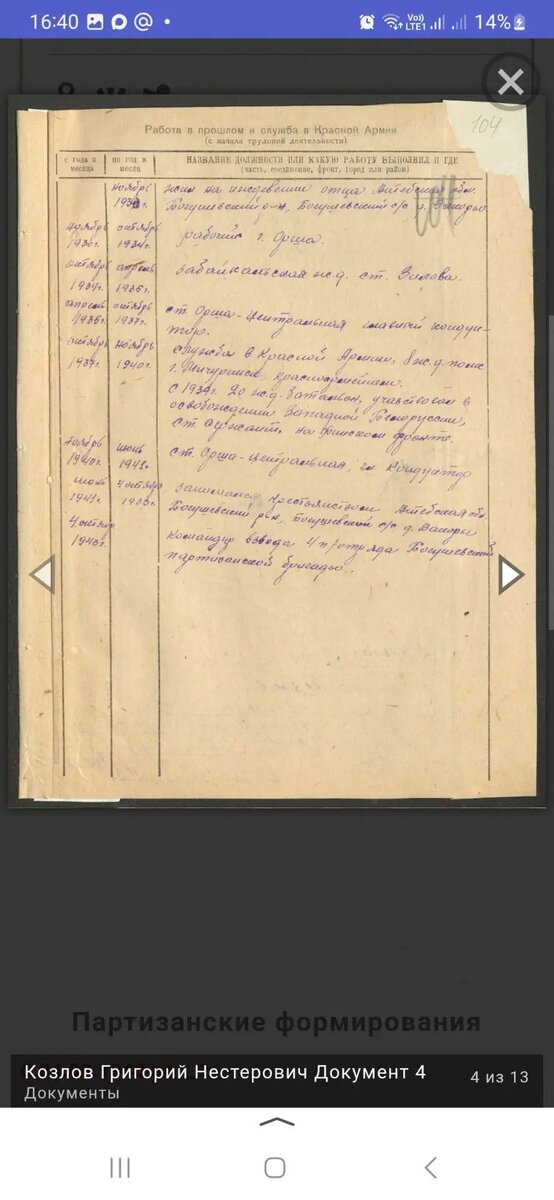 16:40
Vo)) LTE1 14%
104
Работа в прошлом и служба в Красной Армии
(с начала трудовой деятельности)
с года и месяц
по год и месяц
НАЗВАНИЕ ДОЛЖНОСТИ ИЛИ КАКУЮ РАБОТУ ВЫПОЛНЯЛ И ГДЕ
(часть, соединение, фронт, город или район)
ноябрь жил на иждивении отца Витебская обл.
Богушевский р-н, Богушевский с/с д.
ноябрь октябрь рабочий г. Орша.
1930г. 1934г.
октябрь апрель Забайкальская ж.д. ст. Зилова.
1934г. 1935г.
апрель октябрь ст. Орша-Центральная главный кондук-
1935г. 1937г. тор.
октябрь ноябрь служба в Красной Армии, 8 ж.д. полк
1937г. 1940г. г. Мичуринск красноармейцем.
с 1939г. 20 ж.д. батальон, участвовал в
освобождении Западной Белоруссии,
ст. сержант, на финском фронте.
ноябрь июнь ст. Орша-Центральная, гл. кондуктор
1940г. 1941г.
июль 4 октября занимался крестьянством Витебская обл.
1941г. Богушевский р-н, Богушевский с/с д.
4 октября командир взвода 4/п/отряда Богушевской
1943г. партизанской бригады.
Партизанские формирования
Козлов Григорий Нестерович Документ 4
4 из 13
Документы